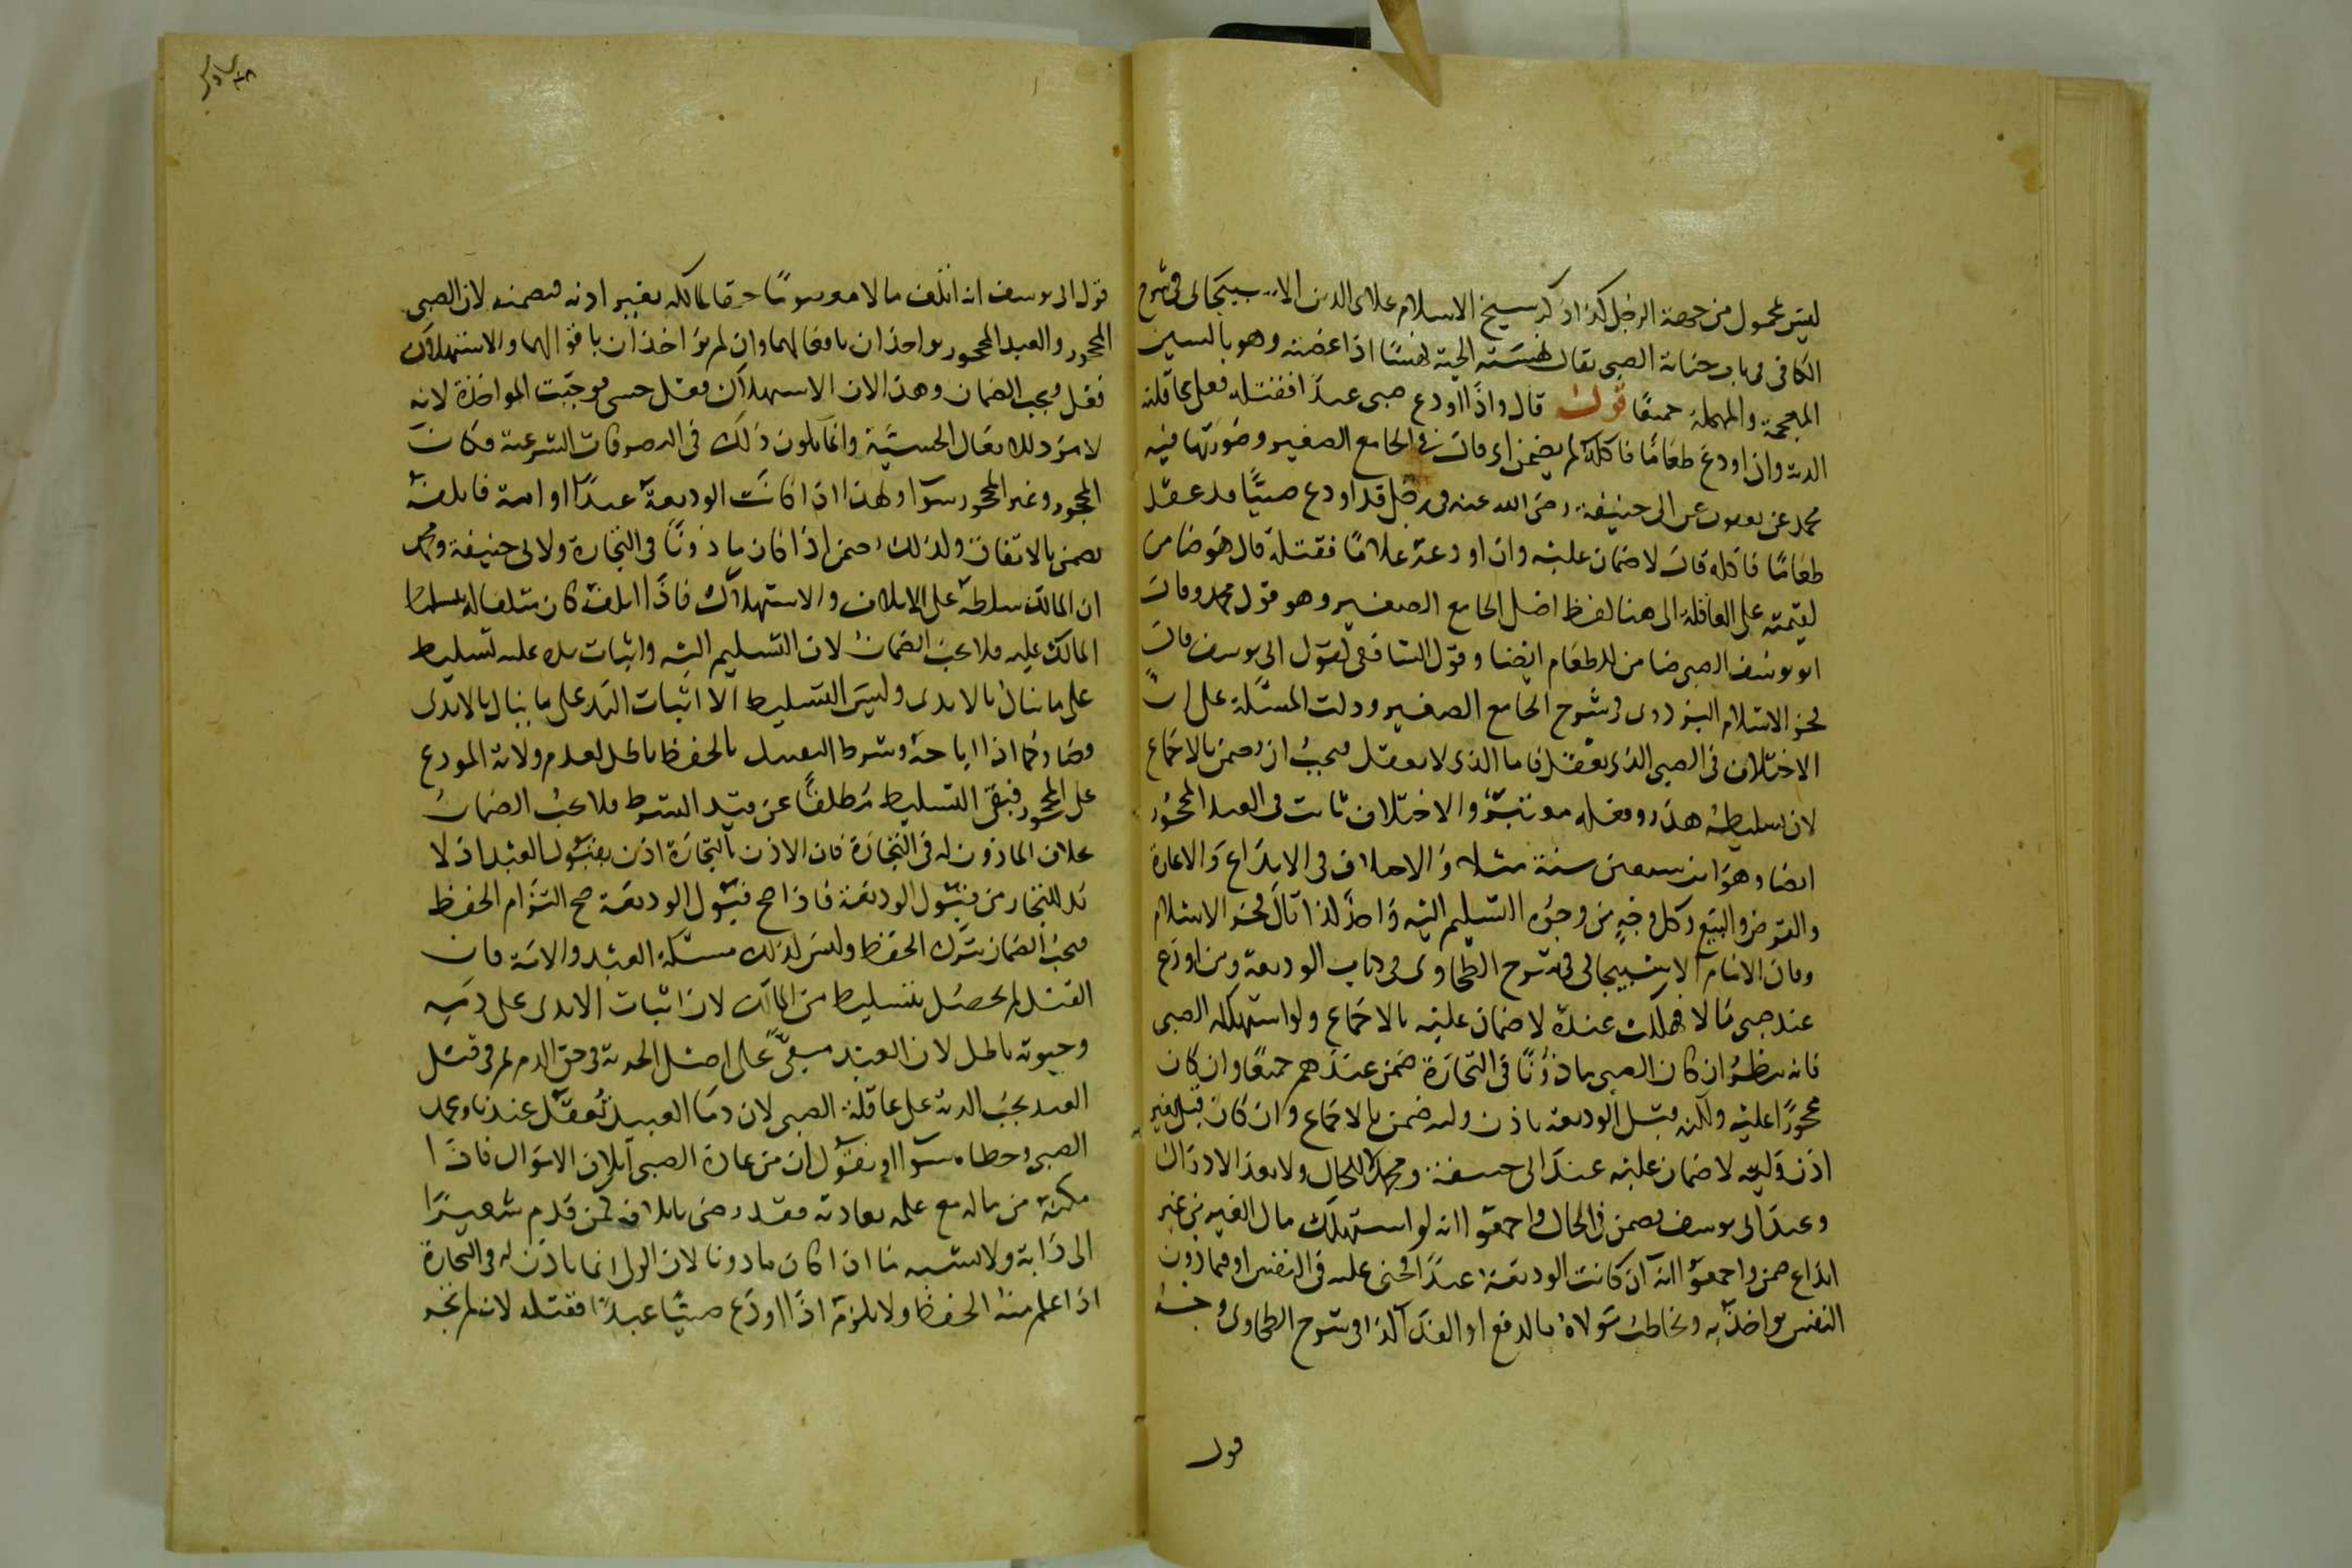 ليس بمحمول من جهة الرجل كذا ذكر شيخ الاسلام علاى الدين الاسبيجابى فى شرح
الكافى فى باب جناية الصبى يقال نهسته الحية نهسًا اذا عضته وهو بالسين
المعجمة والمهملة جميعًا قوله قال واذا اودع صبى عبدًا فقتله فعلى عاقلته
الدية وان اودع طعامًا فاكله لم يضمن اى قال فى الجامع الصغير وصورتها فيه
محمد عن يعقوب عن ابى حنيفة رضى الله عنه فى رجل قد اودع صبيًا قد عقل
طعامًا فاكله قال لا ضمان عليه وان اودعه غلامًا فقتله قال هو ضامن
لقيمته على العاقلة الى هنا لفظ اصل الجامع الصغير وهو قول محمد وقال
ابو يوسف الصبى ضامن للطعام ايضا وقول الشافعى كقول ابى يوسف قال
فخر الاسلام البزدوى فى شرح الجامع الصغير ودلت المسئلة على ان
الاختلاف فى الصبى الذى يعقل فاما الذى لا يعقل فيجب ان يضمن بالاجماع
لان تسليطه هدر وفعله معتبر والاختلاف ثابت فى العبد المحجور
ايضا وهو ابن سبعين سنة مثلا والاختلاف فى الايداع والاعارة
والقرض والبيع وكل وجه من وجوه التسليم اليه واحد كذا قال فخر الاسلام
وقال الامام الاسبيجابى فى شرح الطحاوى فى كتاب الوديعة ومن اودع
عند صبى مالا فهلك عنده لا ضمان عليه بالاجماع ولو استهلكه الصبى
فانه ينظر ان كان الصبى ماذونًا فى التجارة ضمن عندهم جميعًا وان كان
محجورًا عليه ولكنه قبل الوديعة باذن وليه ضمن بالاجماع وان كان قبل بغير
اذن وليه لا ضمان عليه عند ابى حنيفة ومحمد لا للحال ولا بعد الادراك
وعند ابى يوسف يضمن فى الحال واجمعوا انه لو استهلك مال الغير من غير
ايداع ضمن واجمعوا انه ان كانت الوديعة عبدًا فجنى عليه فى النفس او فيما دون
النفس يواخذ به ويخاطب مولاه بالدفع او الفداء كذا فى شرح الطحاوى وجه
قول
قول ابى يوسف انه اتلف مالا معصومًا حقا لمالكه بغير اذنه فيضمنه لان الصبى
المحجور والعبد المحجور يواخذان بافعالهما وان لم يؤاخذان باقوالهما والاستهلاك
فعل موجب الضمان وهذا لان الاستهلاك فعل حسى فوجبت المواخذة لانه
لا مرد للافعال الحسية وانما يكون ذلك فى التصرفات الشرعية فكان
المحجور وغير المحجور سوا ولهذا اذا كانت الوديعة عبدًا او امة فاتلفه
يضمن بالاتفاق ولذلك يضمن اذا كان ماذونًا فى التجارة ولابى حنيفة ومحمد
ان المالك سلطه على الاتلاف والاستهلاك فاذا اتلفه كان متلفا له بتسليط
المالك عليه فلا يجب الضمان لان التسليم اليه واثبات يده عليه تسليط
على ما ينال بالايدى وليس التسليط الا اثبات اليد على ما ينال بالايدى
وصار كما اذا اباحه وشرط التقييد بالحفظ باطل لعدم ولاية المودع
على المحجور فبقى التسليط مطلقًا عن قيد الشرط فلا يجب الضمان
بخلاف الماذون له فى التجارة فان الاذن بالتجارة اذن بقبول العبد اذ لا
بد للتجار من قبول الوديعة فاذا صح قبول الوديعة صح التزام الحفظ
فيجب الضمان بترك الحفظ وليس كذلك مسئلة العبد والامة فان
القتل لم يحصل بتسليط من المالك لان اثبات الايدى على دمه
وحيوته باطل لان العبد مبقى على اصل الحرية فى حق الدم ثم فى قتل
العبد يجب الدية على عاقلة الصبى لان دما العبيد تُعقل عندنا وعمد
الصبى وخطاه سوا او نقول ان من عادة الصبى اتلاف الاموال فاذا
مكنه من ماله مع علمه بعادته فقد رضى باتلافه كمن قدم شعيرًا
الى دابة ولا يشبه ما اذا كان ماذونا لان الولى انما ياذن له فى التجارة
اذا علم منه الحفظ ولا يلزم اذا اودع صبيًا عبدًا فقتله لانه لم تجر